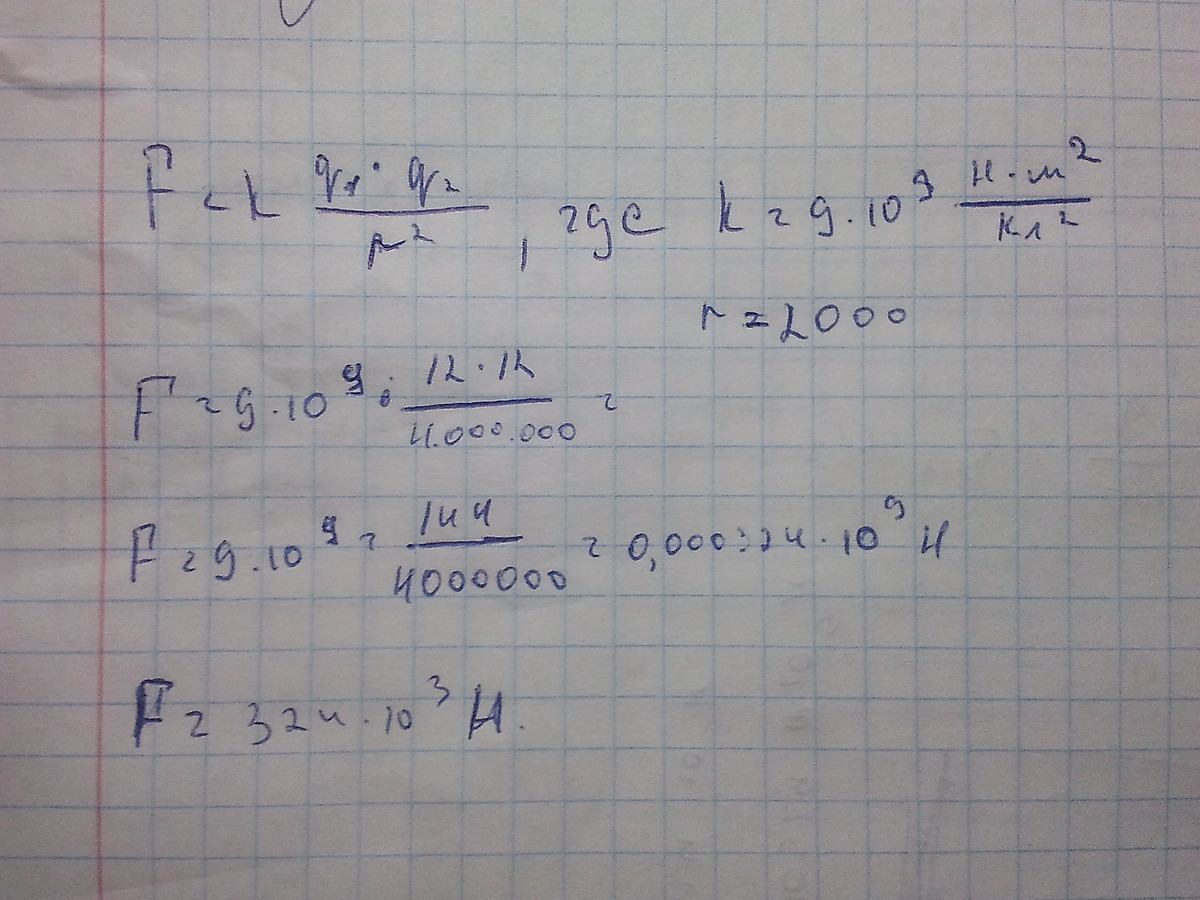 F = k q₁ · q₂ / r² , где k = 9 · 10⁹ Н · м² / Кл²
r = 2000
F = 9 · 10⁹ · 12 · 12 / 4.000.000 =
F = 9 · 10⁹ = 144 / 4000000 = 0,000324 · 10⁹ Н
F = 324 · 10³ Н.